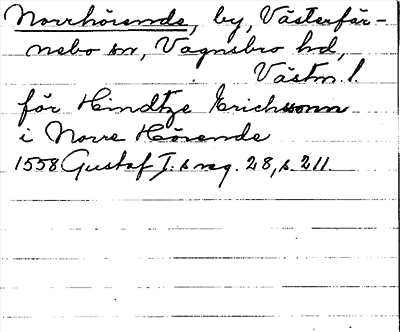 Norrhörende, by, Västerfär-
nebo sn, Vagnsbro hd,
Västm. l.
för Hindtze Erichssonn
i Norre Hörende
1558 Gustaf I:s reg. 28, s. 211.